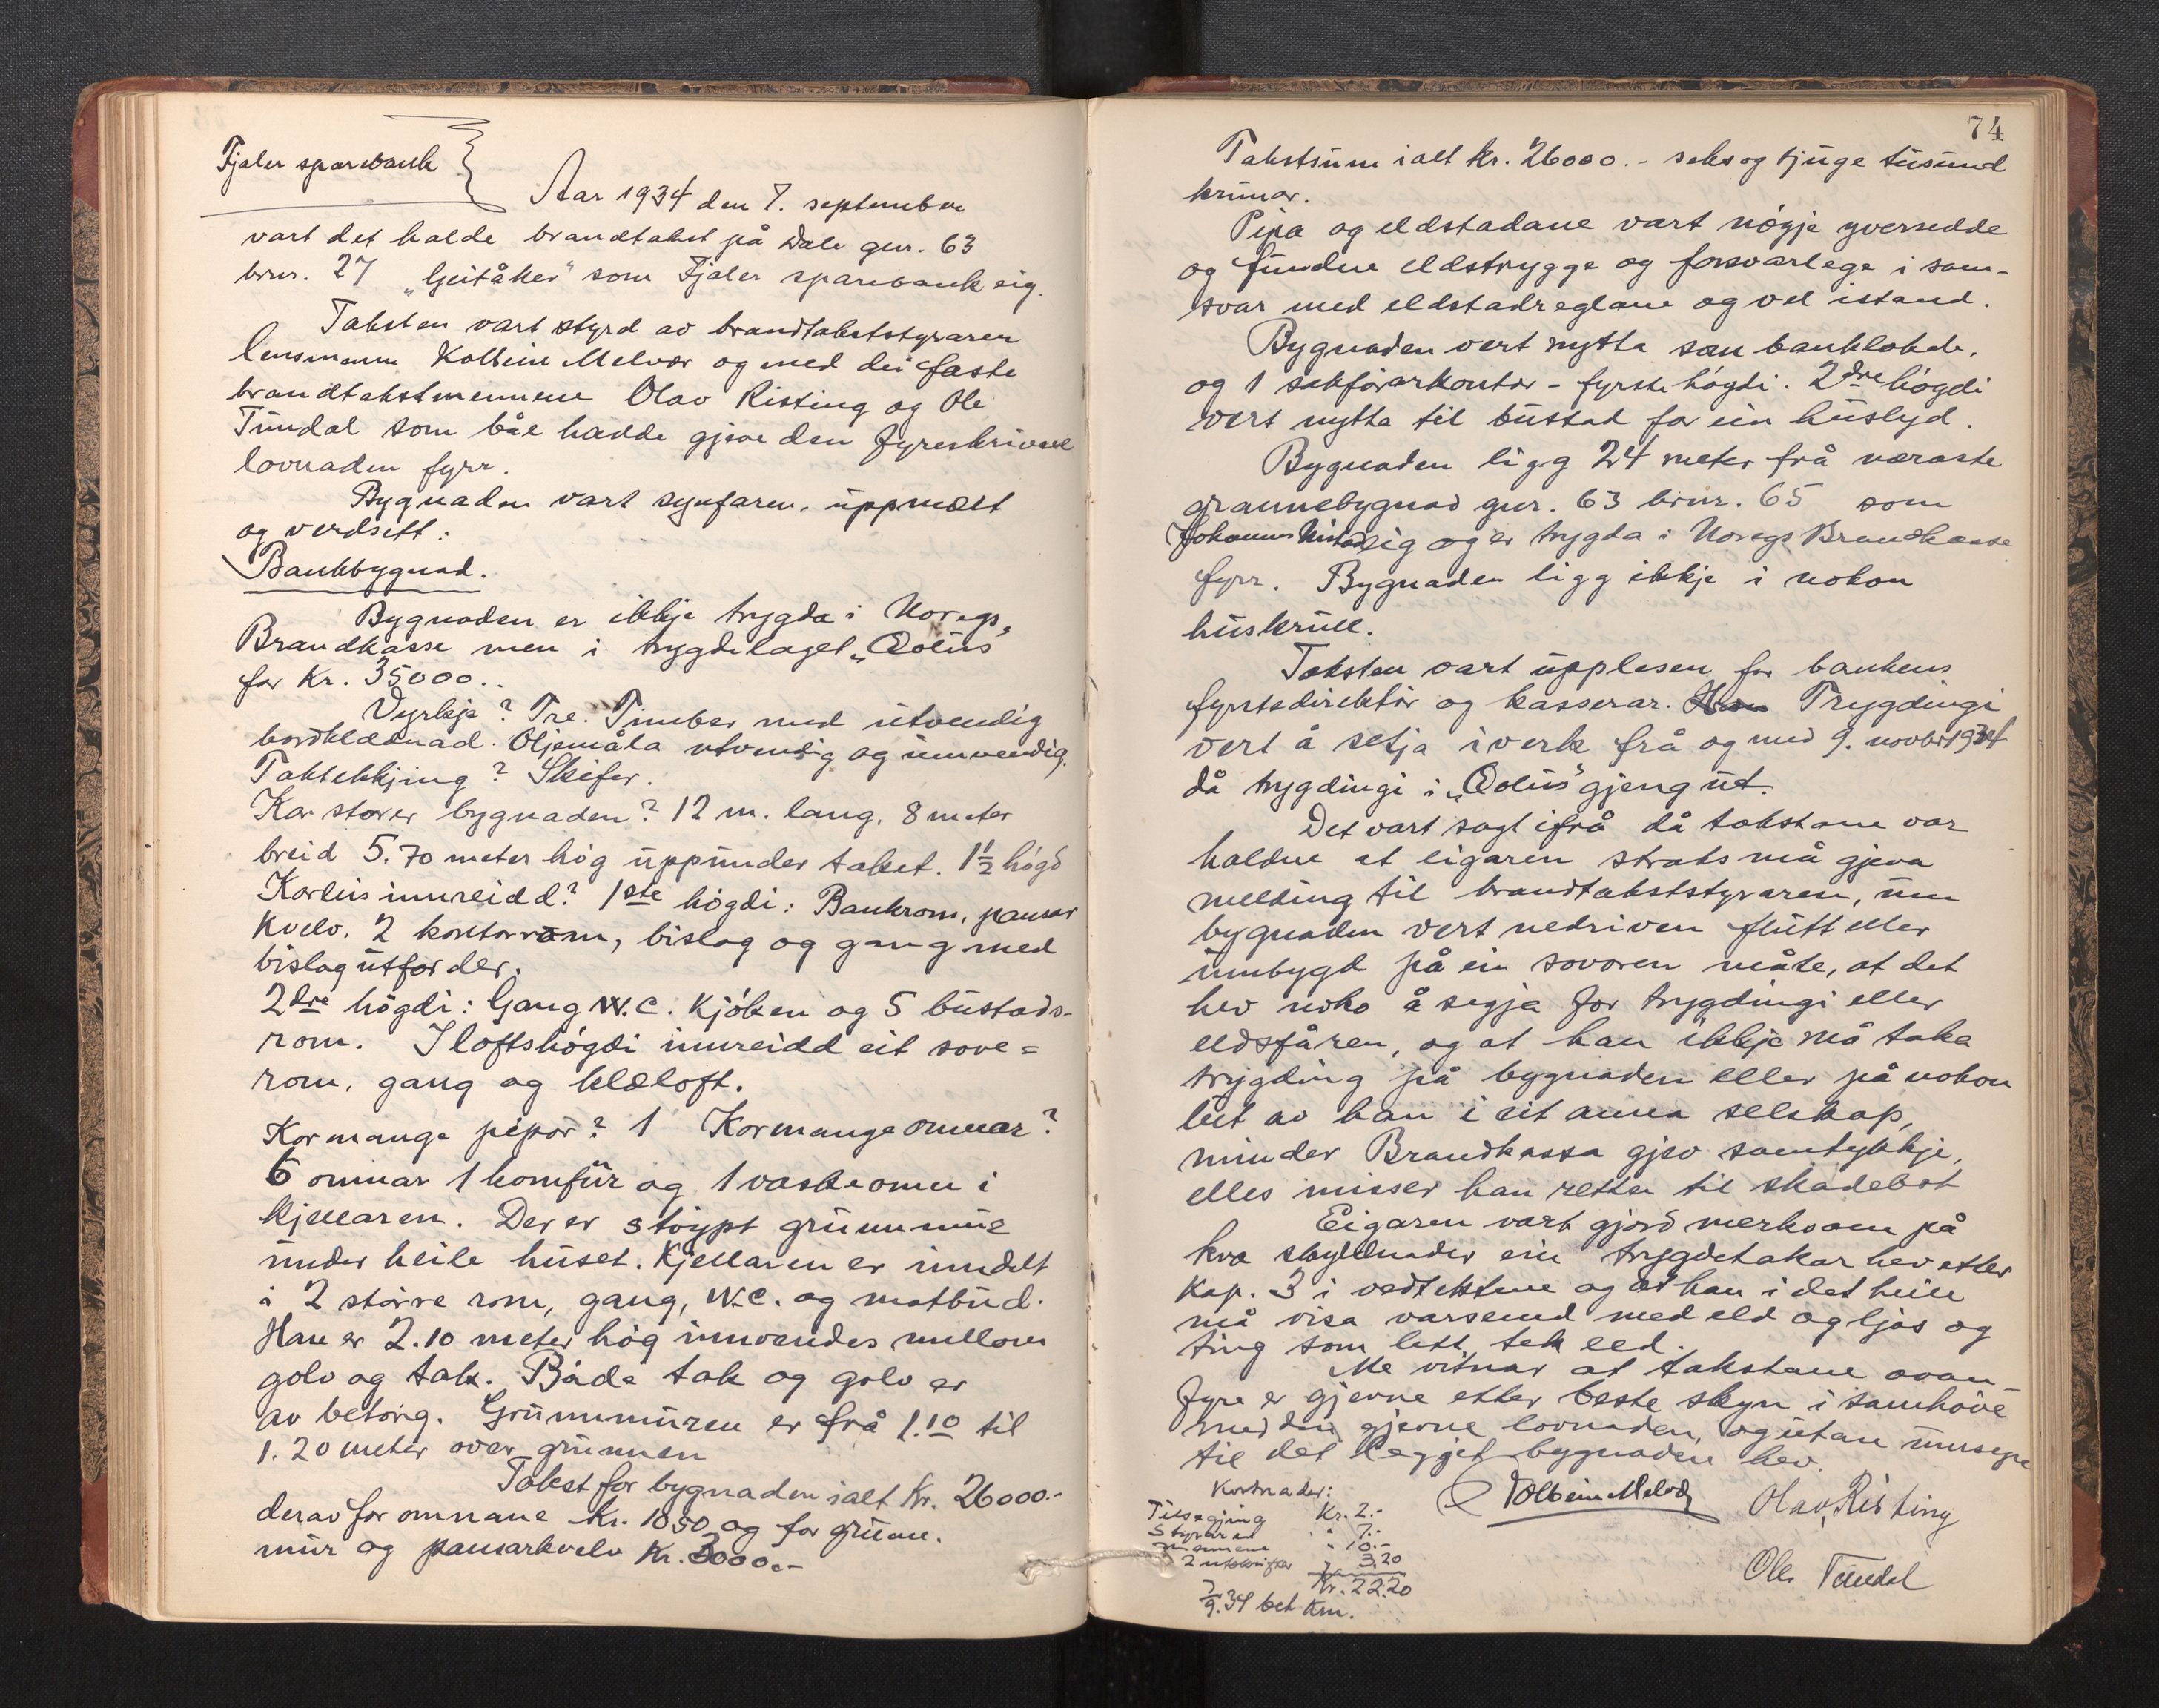 Fjaler sparebank
Aar 1934 den 7. september
vart det halde brandtakst på Dale gnr. 63
brnr. 27 „Geitåker" som Fjaler sparebank eig.
Taksten vart styrd av brandtakststyraren
lensmann Kolbein Melvær og med dei faste
brandtakstmennene Olav Risting og Ole
Tundal som båe hadde gjeve den fyreskrivne
lovnaden fyrr.
Bygnaden vart synfaren, uppmælt
og verdsett:
Bankbygnad.
Bygnaden er ikkje trygda i Noregs
Brandkasse men i trygdelaget „Æolus"
for Kr. 35000..
Vyrkje? Tre. Timber med utvendig
bordklædnad. Oljemåla utvendig og innvendig.
Taktekkjing? Skifer.
Kor stor er bygnaden? 12 m. lang, 8 meter
breid 5.70 meter høg uppunder taket. 1½ høgd
Korleis innreidd? 1ste høgdi: Bankrom, pansar
kvelv. 2 kontorrom, bislag og gang med
bislag utfor der.
2dre høgdi: Gang W.C. Kjøken og 5 bustads-
rom. I loftshøgdi innreidd eit sove=
rom, gang og klæloft.
Kor mange pipor? 1 Kor mange omnar?
6 omnar 1 komfür og 1 vaskeomn i
kjellaren. Der er støypt grunnmur
under heile huset. Kjellaren er inndelt
i 2 större rom, gang, W.C. og matbud.
Han er 2.10 meter høg innvendes millom
golv og tak. Både tak og golv er
av betong. Grunnmuren er frå 1.10 til
1.20 meter over grunnen
Takst for bygnaden ialt Kr. 26000.-
derav for omnane kr. 1050 og for grunn.
mur og pansarkvelv Kr. 3000.-
74
Takstsum ialt kr. 26000.- seks og tjuge tusund
krunor.
Pipa og eldstadane vart nøgje yversedde
og fundne eldstrygge og forsvarlege i sam-
svar med eldstadreglane og vel istand.
Bygnaden vert nytta som banklokale,
og 1 sakførarkontor - fyrste høgdi. 2dre høgdi
vert nytta til bustad for ein huslyd.
Bygnaden ligg 24 meter frå næraste
grannebygnad gnr. 63 brnr. 65 som
Johannes eig og er trygda i Noregs Brandkasse
fyrr. Bygnaden ligg ikkje i nokon
huskrull.
Taksten vart upplesen for bankens
fyrstedirektør og kasserar. Trygdingi
vert å setja iverk frå og med 9. novbr 1934
då trygdingi i „Æolus" gjeng ut.
Det vart sagt ifrå då takstane var
haldne at eigaren straks må gjeva
melding til brandtakststyraren, um
bygnaden vert nedriven flutt eller
umbygd på ein sovoren måte, at det
hev noko å segja for trygdingi eller
eldsfåren, og at han ikkje må taka
trygding på bygnaden eller på nokon
lut av han i eit anna selskap,
minder Brandkassa gjev samtykkje,
elles misser han retten til skadebot
Eigaren vart gjord merksam på
kva skyldnader ein trygdetakar hev etter
Kap. 3 i vedtektene og at han i det heile
må visa varsemd med eld og ljos og
ting som lett tek eld.
Me vitnar at takstane ovan-
fyre er gjevne etter beste skyn i samhøve
med den gjevne lovnaden, og utan umsyn
til det legget bygnaden hev.
Kostnader:
Tilsegjing Kr. 2.-
Styraren " 7.-
Mennene " 10.-
2 utskrifter " 3.20
Kr. 22.20
7/9.34 bet. Km.
Kolbein Melvær
Olav Risting
Ole Tundal